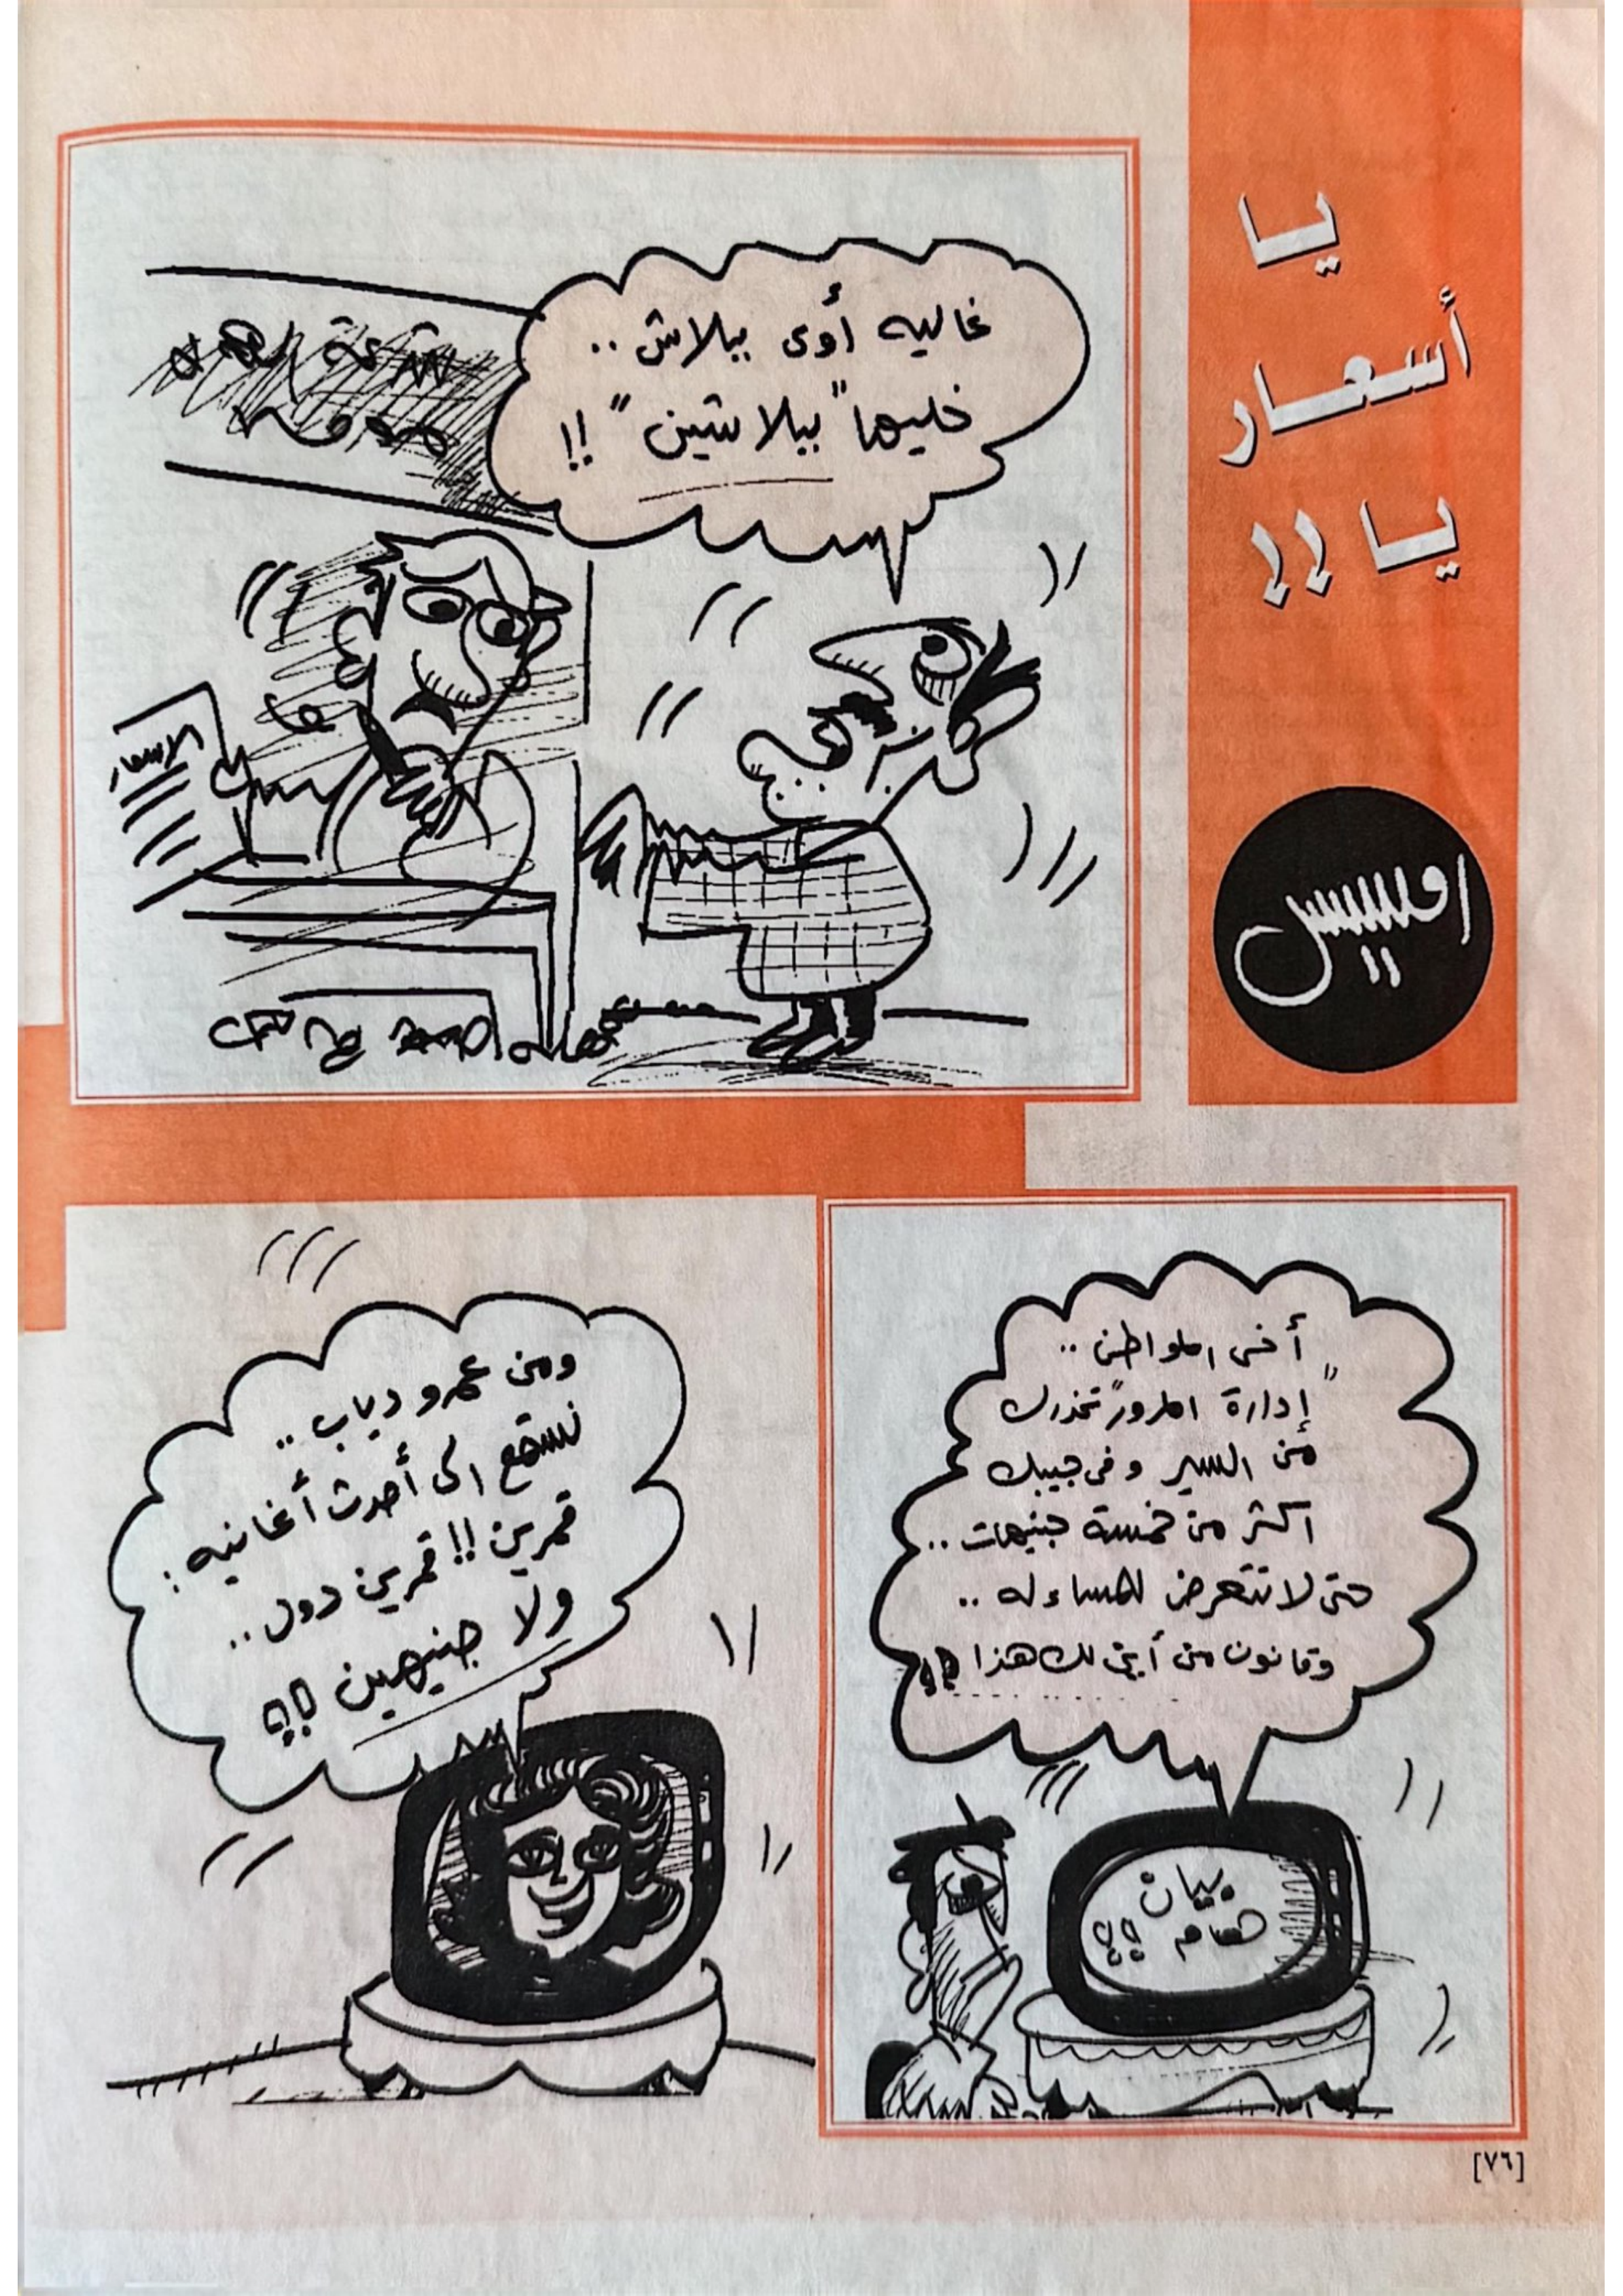 يا
أسعار
يا !!
غاليه أوى ببلاش ..
خليها "ببلاتين" !!
الاسعار
أخى المواطن ..
"إدارة المرور" تحذرك
من السير وفى جيبك
اكثر من خمسة جنيهات ..
حتى لا تتعرض للمساءله ..
وقانون من أين لك هذا !!
بيان
هام !!
ومن عمرو دياب ..
نستمع الى أحدث أغانيه :
قمرين !! قمرين دول ..
ولا جنيهين !!
[٧٦]